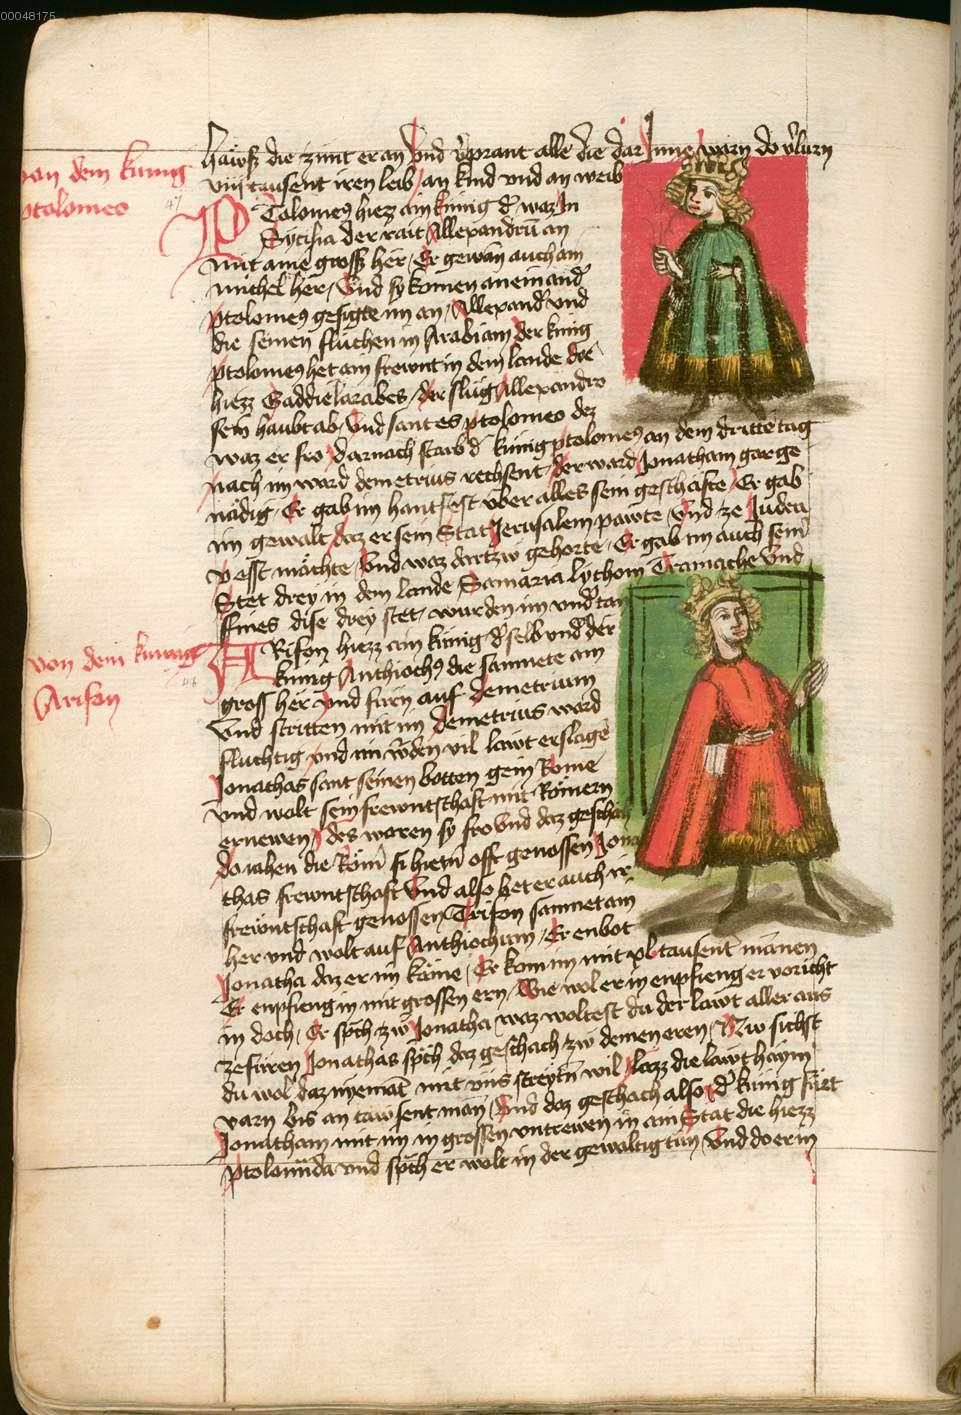 00048175
hawß die zünt er an Vnd v̉prant alle die dar Jnne warn do v̉lurn
viij tausent iren leib / an kind vnd an weib
von dem kunig
ptolomeo
47
PTolomeꝰ hiezz ain künig d̉ waz Jn
der rait Allexandrū an
mit aine grossz her / Er gewan auch ain
michel her / Vnd sy komen an einand̉
ptolomeꝰ gesigte im an / Allexand̉ vnd
die seinen fluchen in Arabiam der kunig
ptolomeꝰ het ain frewnt in dem lande der
hiezz Gaddielarabes / der slüg Allexandro
sein haubt ab / Vnd sant es ptolomeo dez
waz er fro / darnach starb d̉ künig ptolomeꝰ an dem dritte tag
nach im ward demetrius rechsent / der ward Jonatham gar ge
nädig / Er gab im hantfest vber alles sein geschäfte / Er gab
im gewalt / daz er sein Stat Jerusalem pawte Vnd ze Judea
vesst mächte / Vnd waz dartzw gehorte / Er gab im auch sein
Stet drey in dem lande Samaria lychom Vnd
dise drey stet / wurden im vnd̉tan
von dem kunig
Arifon
ARifon hiezz ain künig / d̉ selb vnd̉ der
kunig Anthiochꝰ die samnete ain
gross her vnd fürn auf demetrium
Vnd stritten mit im demetrius ward
fluchtig vnd im wden vil lawt erslagē
Jonathas sant seinen botten gein Rome
vnd wolt sein frewntschaft mit Römern
ernewen / des waren sy fro Vnd daz geschah
do iahen die Röm̉ si hietn̄ offt genossen Jona
thas frewntschaft Vnd also het er auch ir
frewntschaft genossen Trifon samnet ain
her vnd wolt auf Anthiochum / Er enbot
Jonatha daz er im käme / Er kom im mit xl tausent mannen
Er enpfieng in mit grossen ern / Wie wol er in enpfieng er voricht
in doch / Er spch zw Jonatha waz woltest du der lawt aller aus
zefüren Jonathas spch daz geschach zw deinen eren / Nw sichst
du wol daz nyemāt mit vns streytn̄ wil / lazz die lawt haym
varn bis an tawsent man / Vnd daz geschach also / d̉ künig fürt
Jonatham mit im in grossen vntrewen in ain Stat die hiezz
ptolomida vnd spch er wolt in der gewaltig tun / Vnd do er in